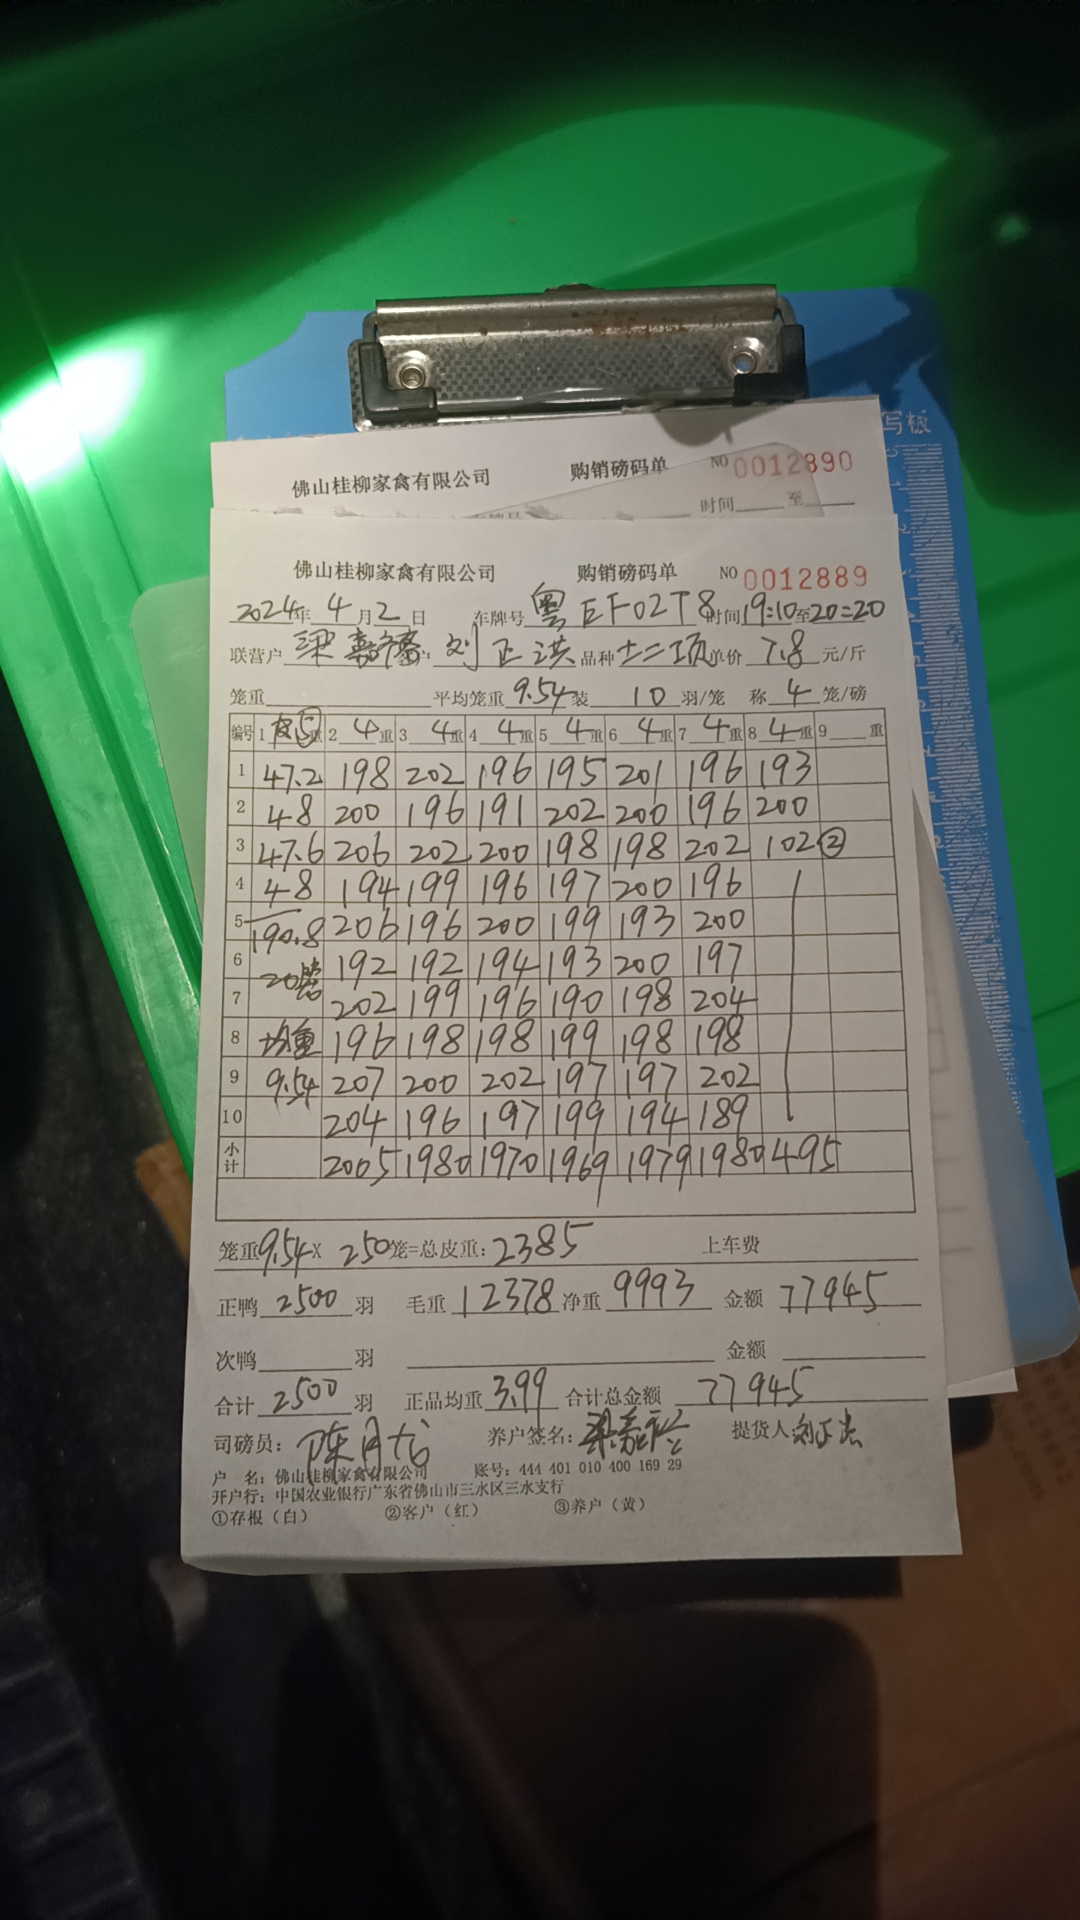 写板
佛山桂柳家禽有限公司 购销磅码单 NO 0012890
时间 至
佛山桂柳家禽有限公司 购销磅码单 NO 0012889
2024年 4月2日 车牌号 粤EF02T8 时间19:10至20:20
联营户 梁嘉 刘正洪 品种 十二项 单价 7.8 元/斤
笼重 平均笼重 9.54 装 10 羽/笼 称 4 笼/磅
编号 1 皮⑤重 2 4重 3 4重 4 4重 5 4重 6 4重 7 4重 8 4重 9 重
1 47.2 198 202 196 195 201 196 193
2 48 200 196 191 202 200 196 200
3 47.6 206 202 200 198 198 202 102②
4 48 194 199 196 197 200 196
5 190.8 206 196 200 199 193 200
6 20笼 192 192 194 193 200 197
7 202 199 196 190 198 204
8 均重 196 198 198 199 198 198
9 9.54 207 200 202 197 197 202
10 204 196 197 199 194 189
小计 2005 1980 1970 1969 1979 1980 495
笼重9.54X 250笼=总皮重:2385 上车费
正鸭 2500 羽 毛重 12378 净重 9993 金额 77945
次鸭 羽 金额
合计 2500 羽 正品均重 3.99 合计总金额 77945
司磅员: 陈月 养户签名: 梁嘉 提货人:刘正洪
户 名: 佛山桂柳家禽有限公司 账号: 444 401 010 400 169 29
开户行: 中国农业银行广东省佛山市三水区三水支行
①存根(白) ②客户(红) ③养户(黄)